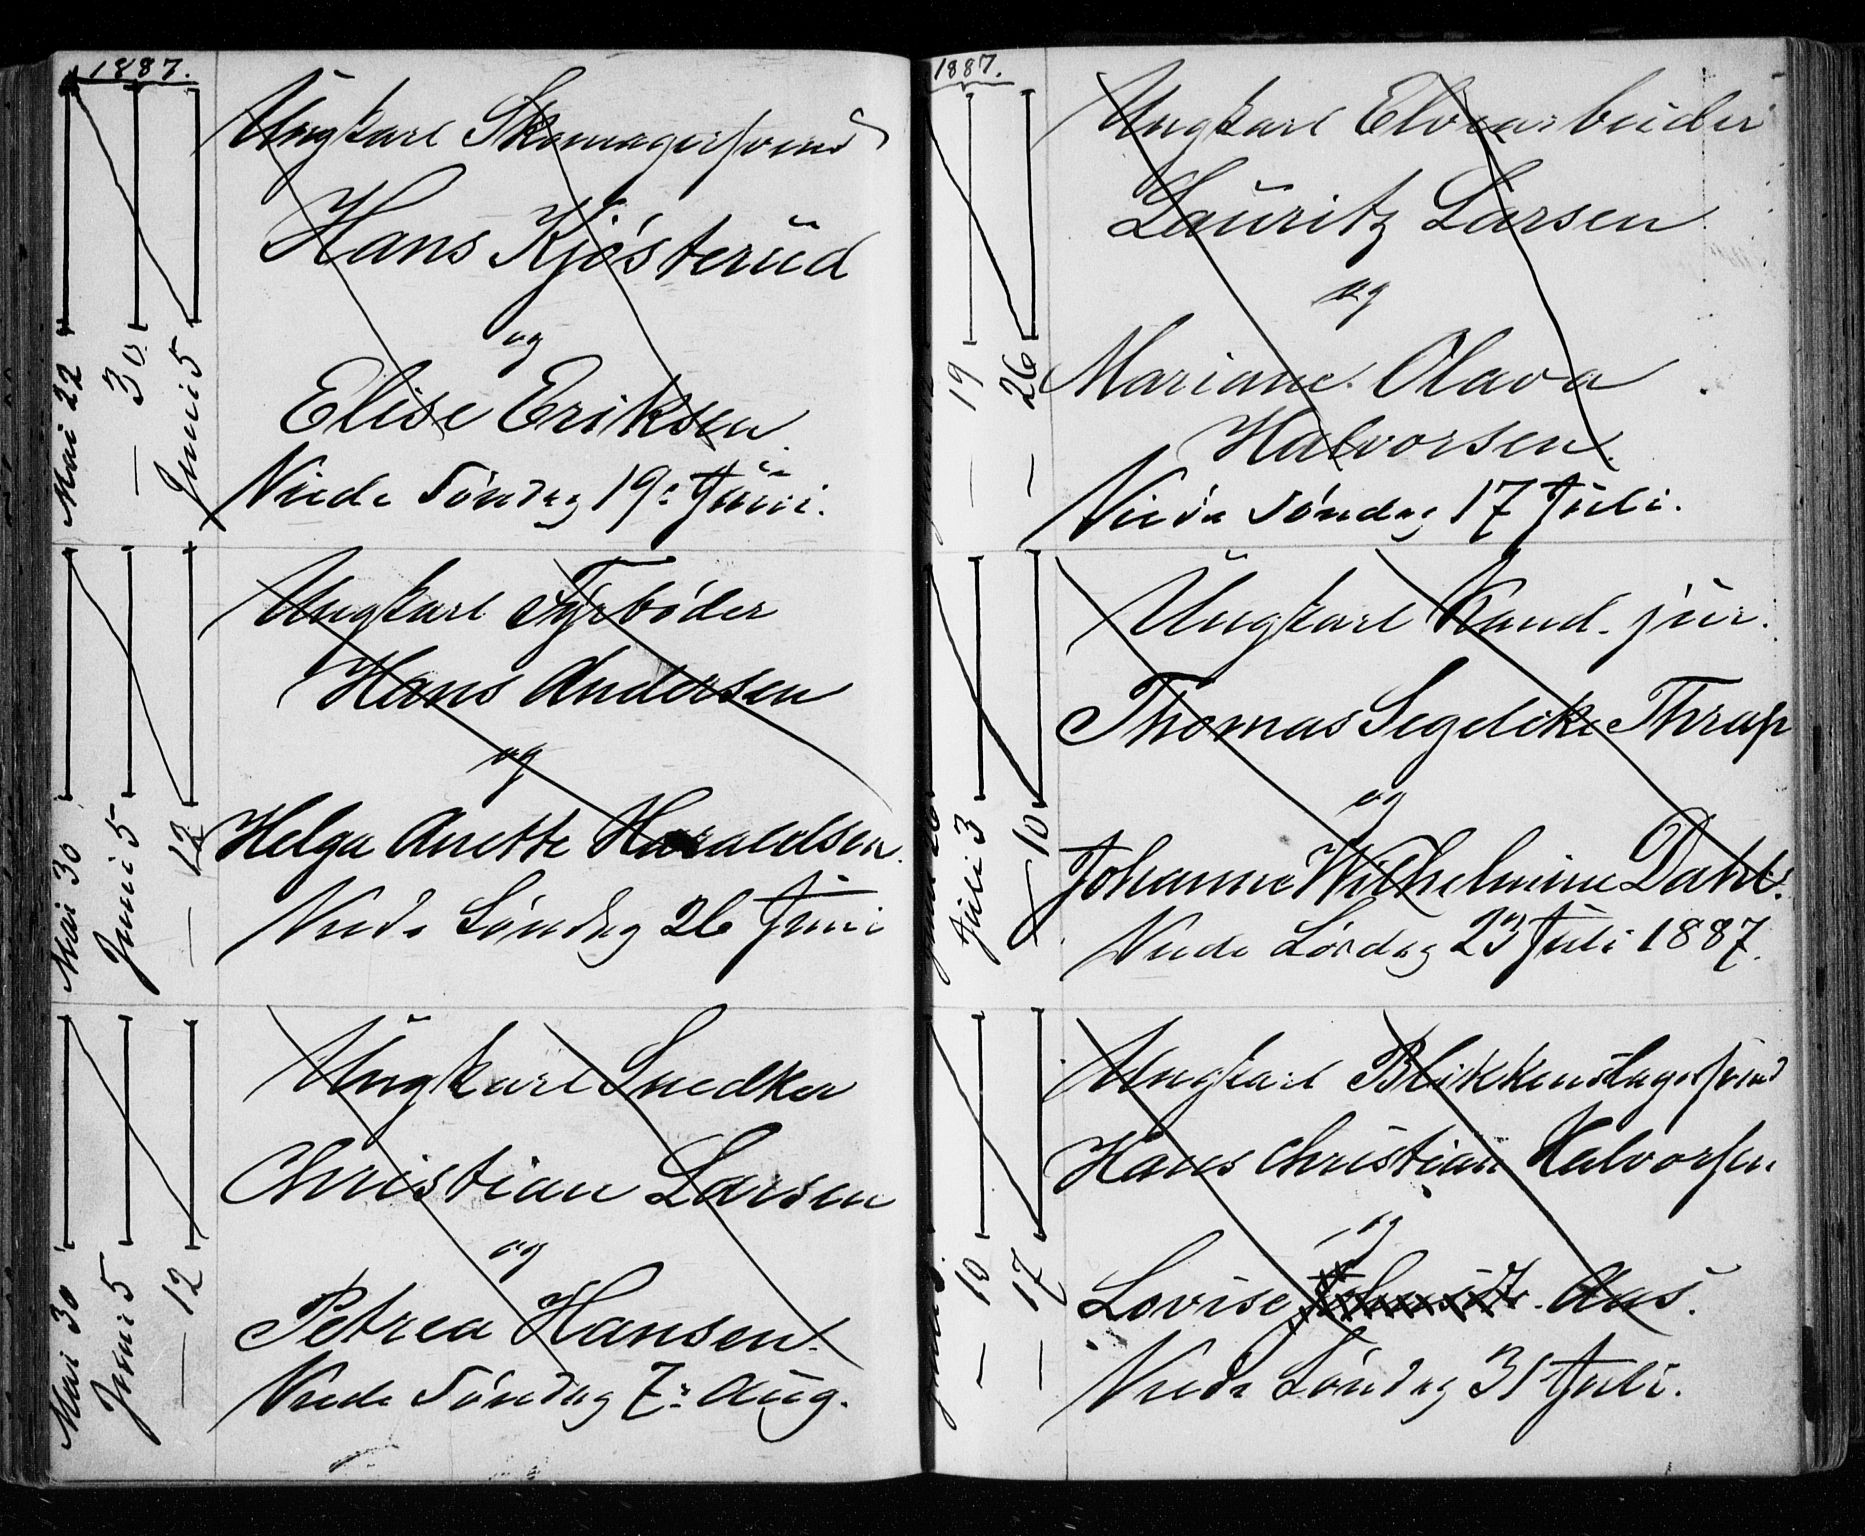 1887.
Mai 22
— 30
Juni 5
Ungkarl Skomagersvend
Hans Kjösterud
og
Elise Eriksen
Viede Söndag 19: Juni.
Mai 30
Juni 5
— 12
Ungkarl Fyrböder
Hans Andersen
og
Helga Anette Haraldsen.
Viede Söndag 26 Juni
Mai 30
Juni 5
— 12
Ungkarl Snedker
Christian Larsen
og
Petrea Hansen.
Viede Söndag 7: Aug.
1887.
— 19
— 26
Ungkarl Elvearbeider
Lauritz Larsen
og
Mariane Olava
Halvorsen.
Viede Söndag 17 Juli.
Juli 3
— 10
Ungkarl Kand. jur.
Thomas Segelcke Thrap
og
Johanne Wilhelmine Dahl.
Viede Lördag 23 Juli 1887.
— 10
— 17
Ungkarl Blikkenslagersvend
Hans Christian Halvorsen
og
Lovise Aas.
Viede Söndag 31 Juli.